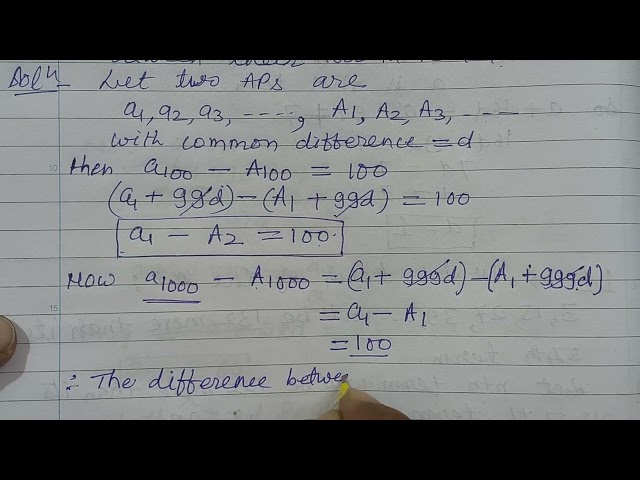 Soln Let two APs are
a1, a2, a3, ----, A1, A2, A3, ----
with common difference = d
10 then a100 − A100 = 100
(a1 + 99d) − (A1 + 99d) = 100
a1 − A2 = 100
Now a1000 − A1000 = (a1 + 999d) − (A1 + 999d)
15 = a1 − A1
= 100
∴ The difference betwe